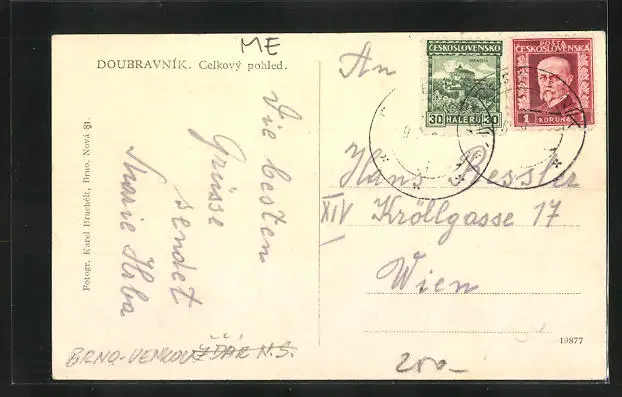 ME
DOUBRAVNÍK. Celkový pohled.
Die besten
Grüsse
sendet
Marie Hoba
Fotogr. Karel Bruchёlt, Brno. Nová 81.
BRNO-VENKOV ŽĎÁR N.S.
ČESKOSLOVENSKO
30 HALÉŘŮ 30
POŠTA
ČESKOSLOVENSKÁ
1 KORUNA 1
An
Hans Bessler
XIV Kröllgasse 17
Wien
19877
200-